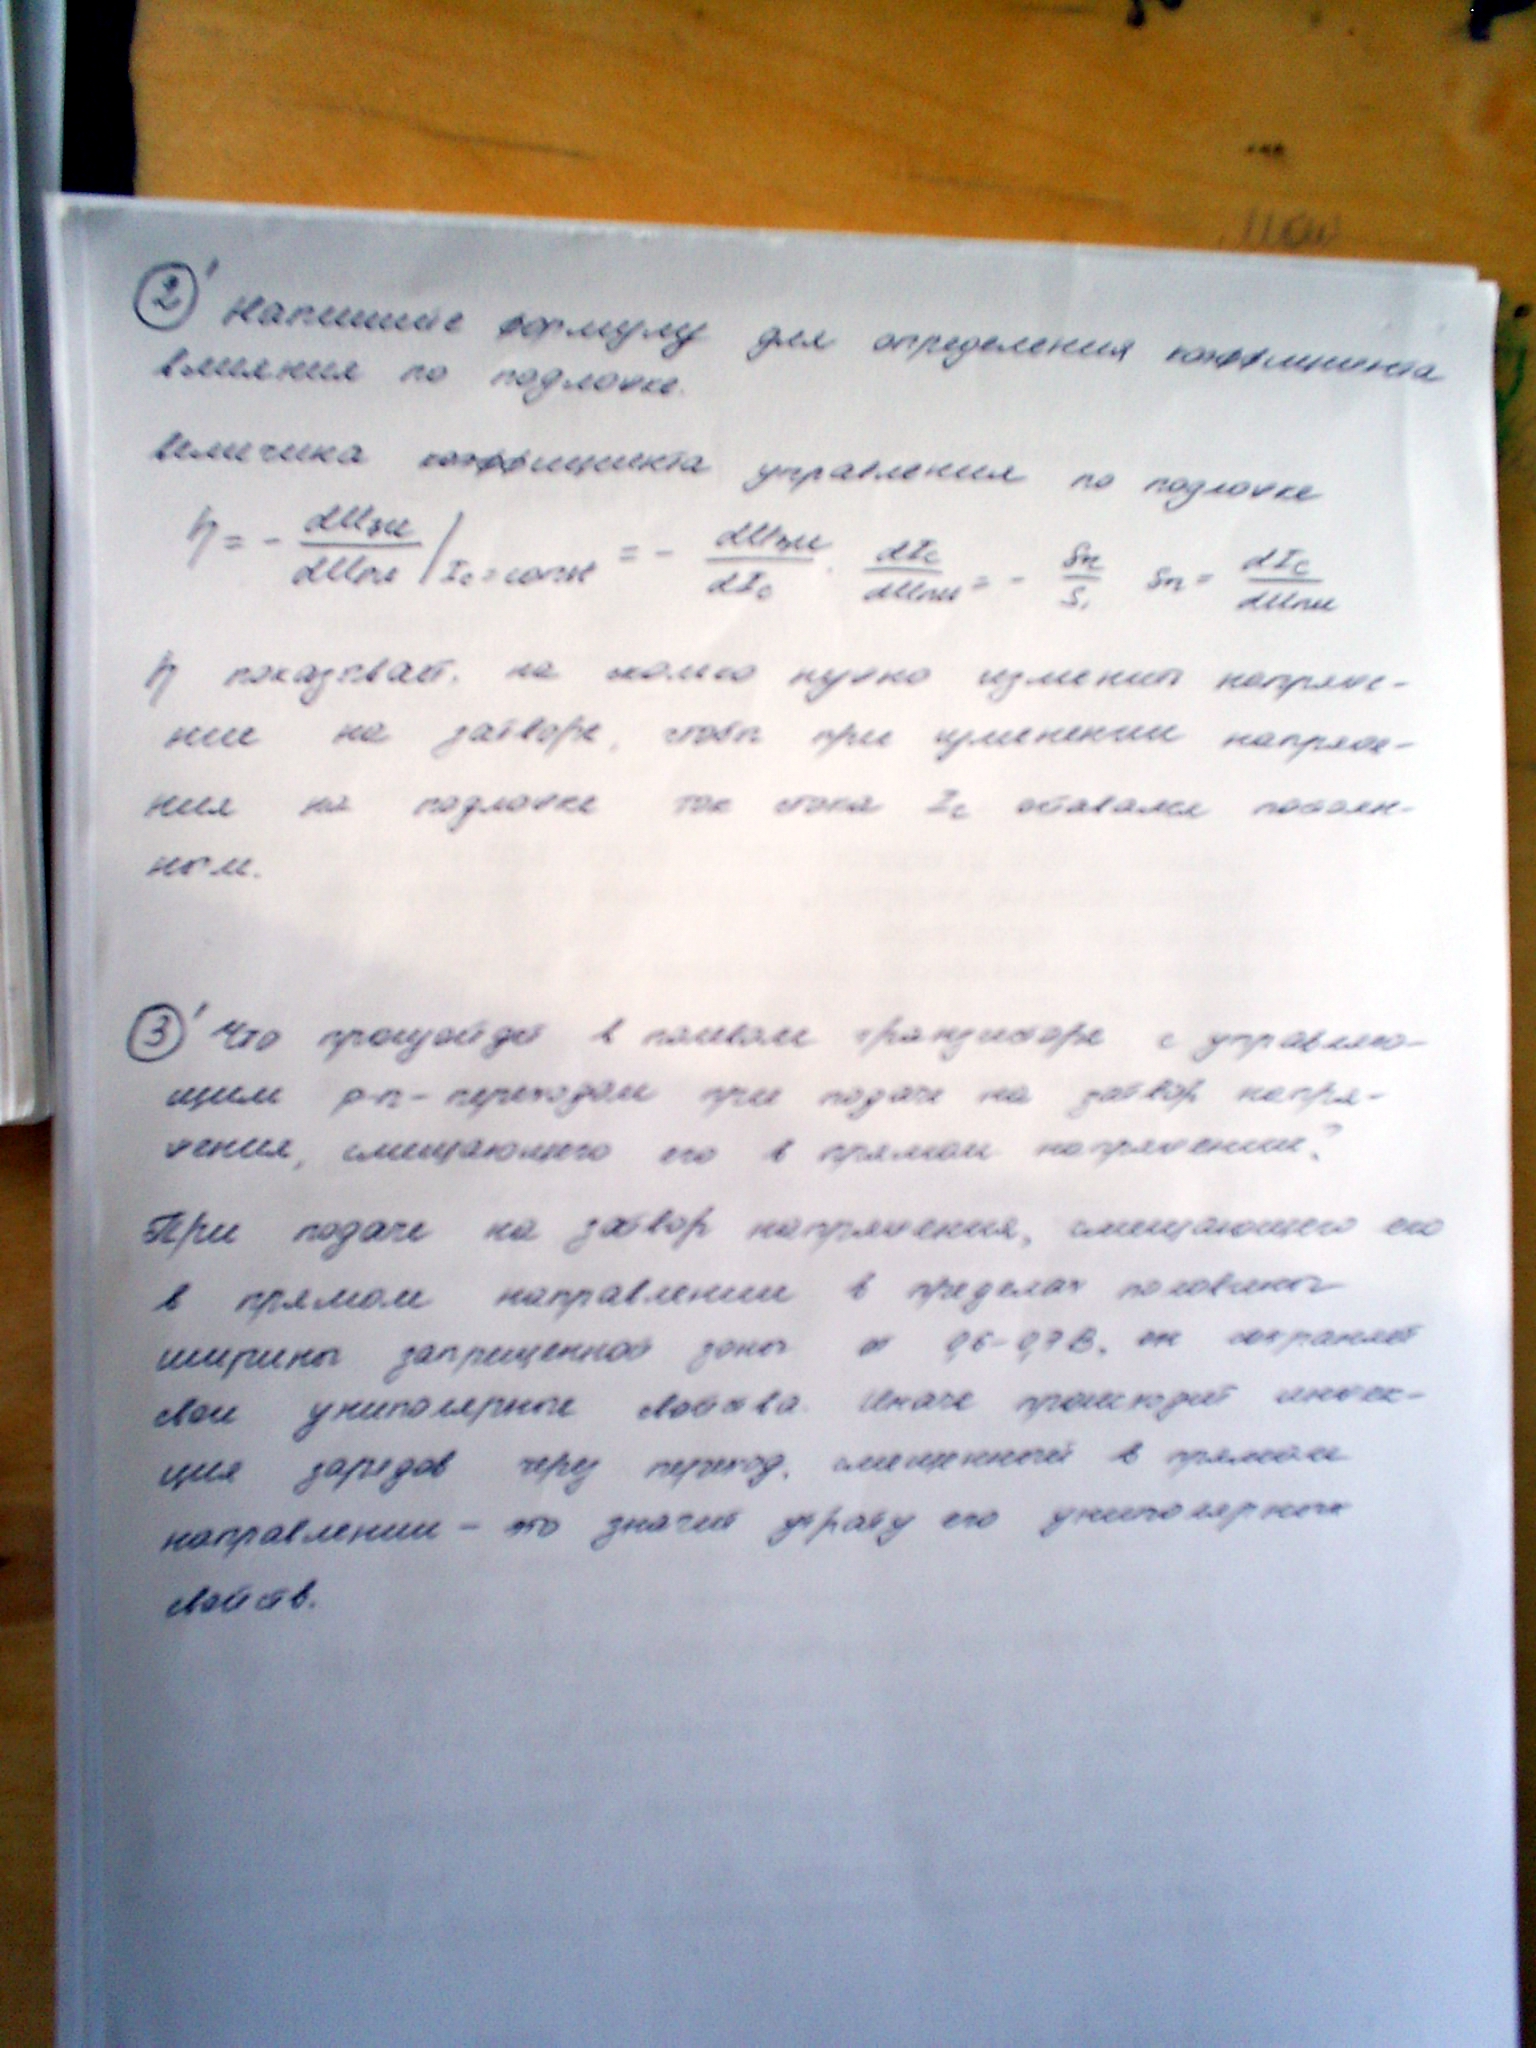 2' Напишите формулу для определения коэффициента
влияния по подложке.
Величина коэффициента управления по подложке
η = - dUзи/dUпи | Ic = const = - dUзи/dIc · dIc/dUпи = - Sп/S, Sп = dIc/dUпи
η показывает, на сколько нужно изменить напряже-
ние на затворе, чтобы при изменении напряже-
ния на подложке ток стока Ic оставался постоян-
ным.
3' Что произойдет в полевом транзисторе с управляю-
щим p-n-переходом при подаче на затвор напря-
жения, смещающего его в прямом напряжении?
При подаче на затвор напряжения, смещающего его
в прямом направлении в пределах половины
ширины запрещенной зоны 0,6-0,7В, он сохраняет
свои униполярные свойства. Иначе происходит инжек-
ция зарядов через переход, смещенный в прямом
направлении - это значит утрату его униполярных
свойств.